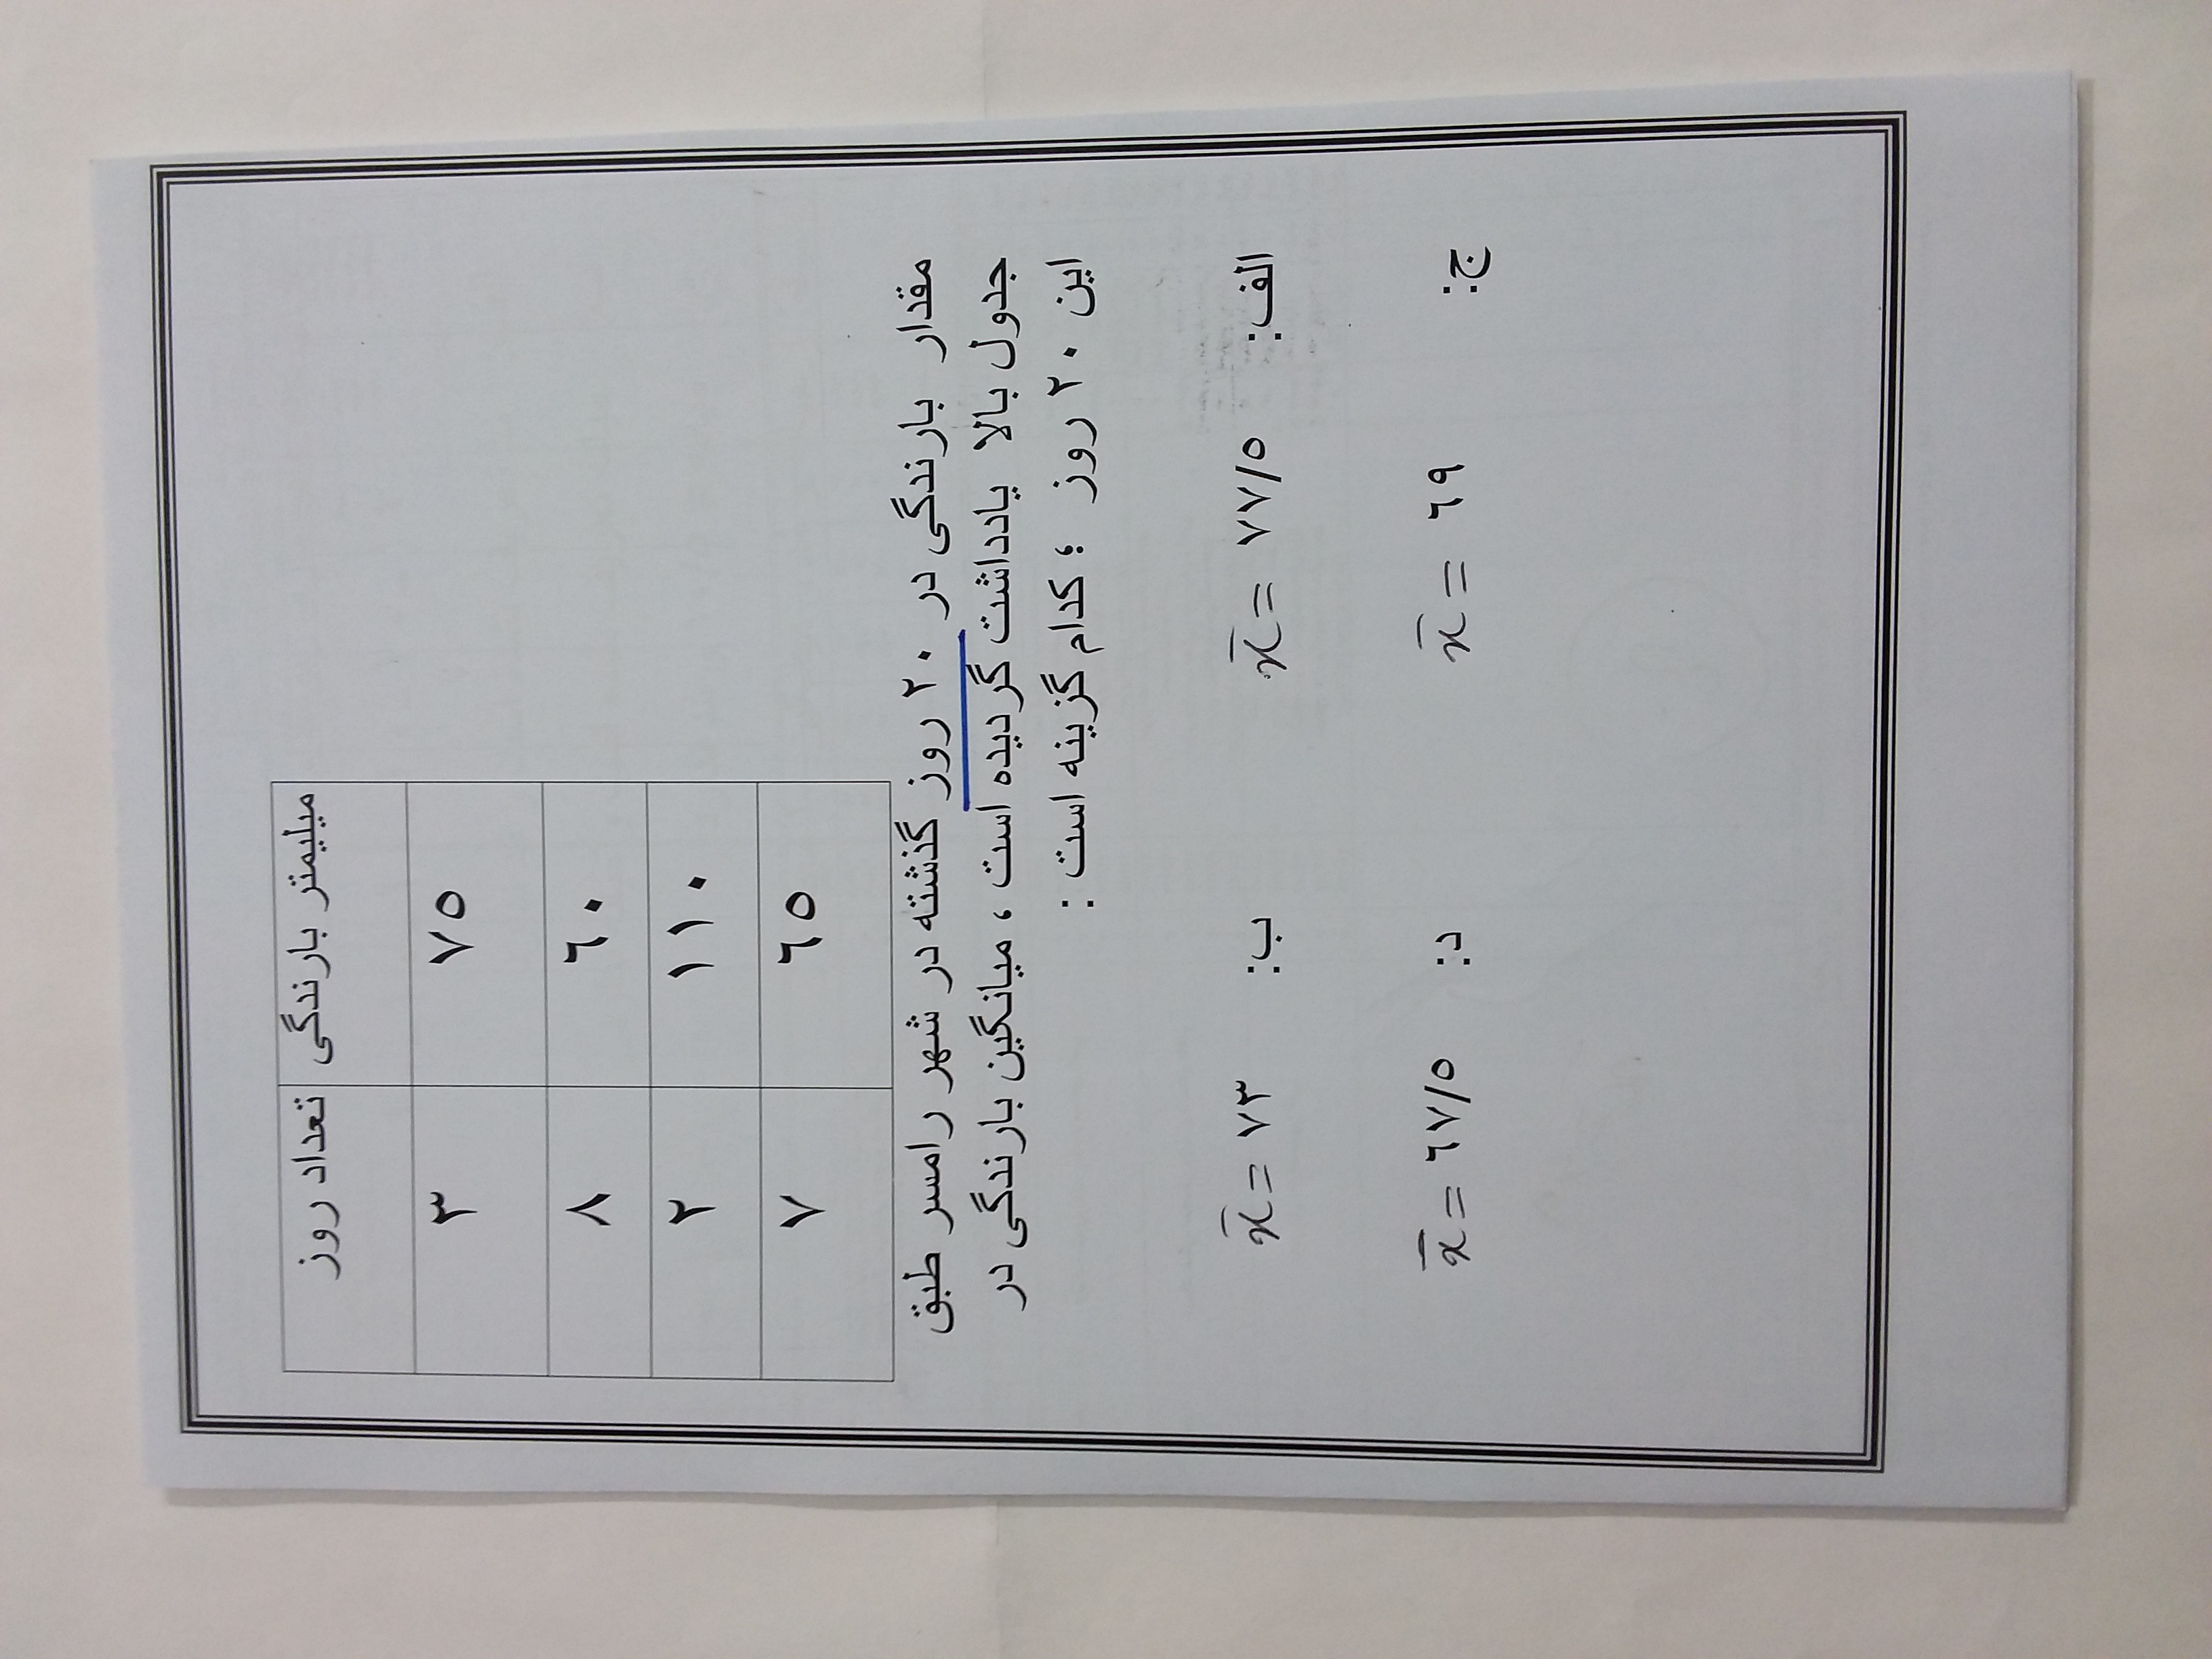 میلیمتر بارندگی تعداد روز
٧٥ ٣
٦٠ ٨
١١٠ ٢
٦٥ ٧
مقدار بارندگی در ٢٠ روز گذشته در شهر رامسر طبق
جدول بالا یادداشت گردیده است ، میانگین بارندگی در
این ٢٠ روز ؛ کدام گزینه است :
الف: x̄ = ٧٧/٥ ب: x̄ = ٧٣
ج: x̄ = ٦٩ د: x̄ = ٦٧/٥